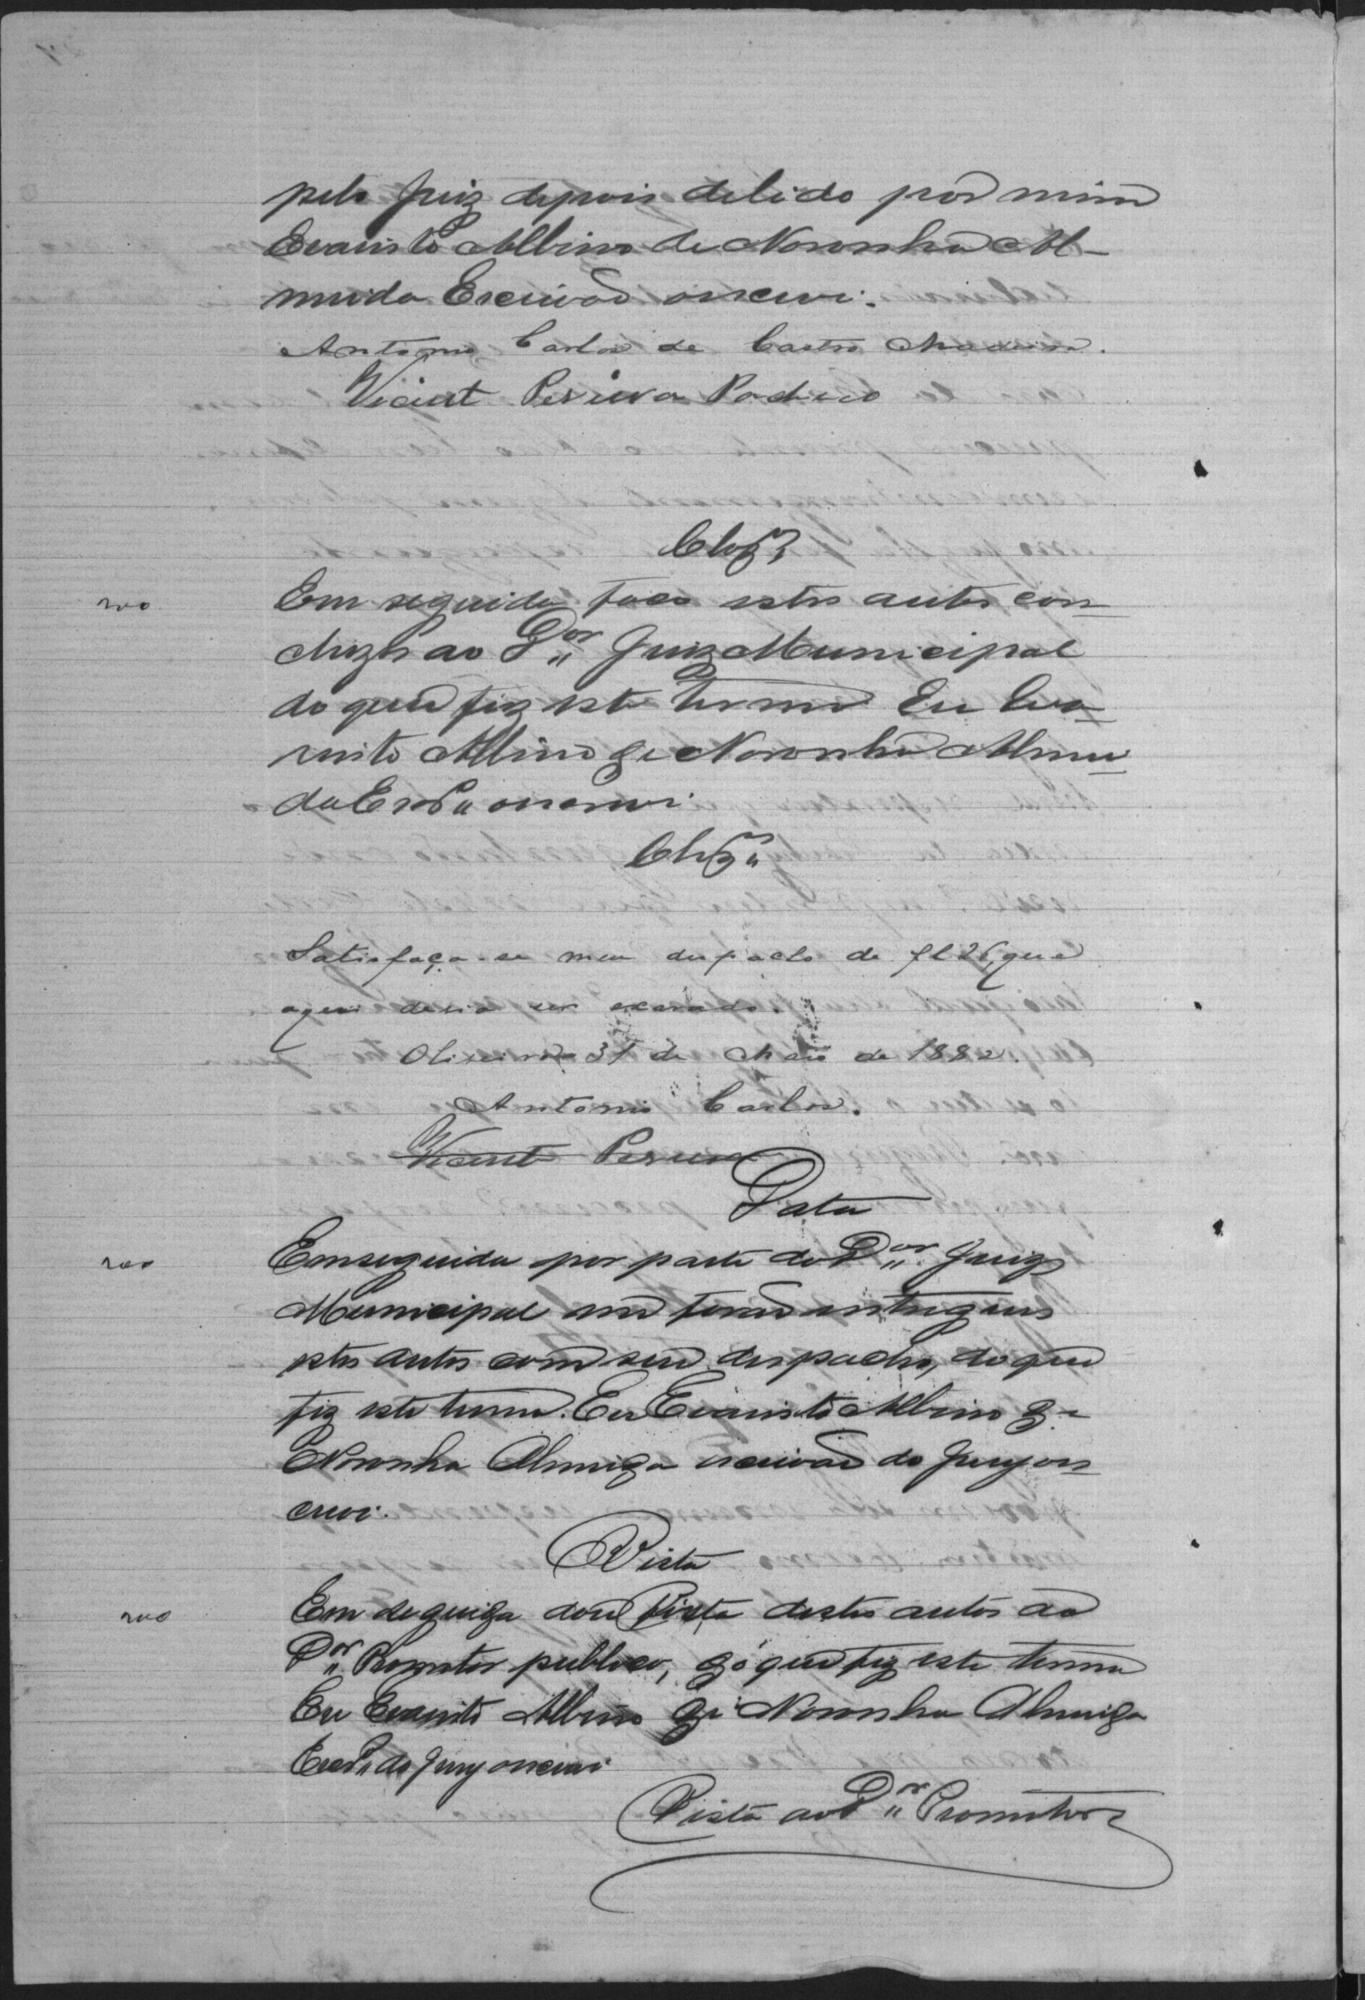 pelo Juiz depois de lido por mim
Evaristo Albino de Noronha Al-
meida Escrivão o escrevi.
Antonio Carlos de Castro Madeira.
Vicente Pereira Pacheco
Clsz
200
Em seguida faço estes autos con-
cluzos ao Dor Juiz Municipal
do que fiz este termo Eu Eva-
risto Albino de Noronha Almei-
da Escr o escrevi
Clsz
Satisfaça-se meu despacho de fl 26, que
aqui devia ser exarado.
Oliveira 31 de Maio de 1882.
Antonio Carlos.
Vicente Pereira
Data
200
Em seguida por parte do Dor Juiz
Municipal me forão entregues
estes autos com seu despacho, do que
fiz este termo. Eu Evaristo Albino de
Noronha Almeida escrivão do Jury o es-
crevi.
Vista
200
Em seguida dou vista destes autos ao
Dor Promotor publico, do que fiz este termo
Eu Evaristo Albino de Noronha Almeida
Escr do Jury o escrevi
Vista ao Dor Promotor